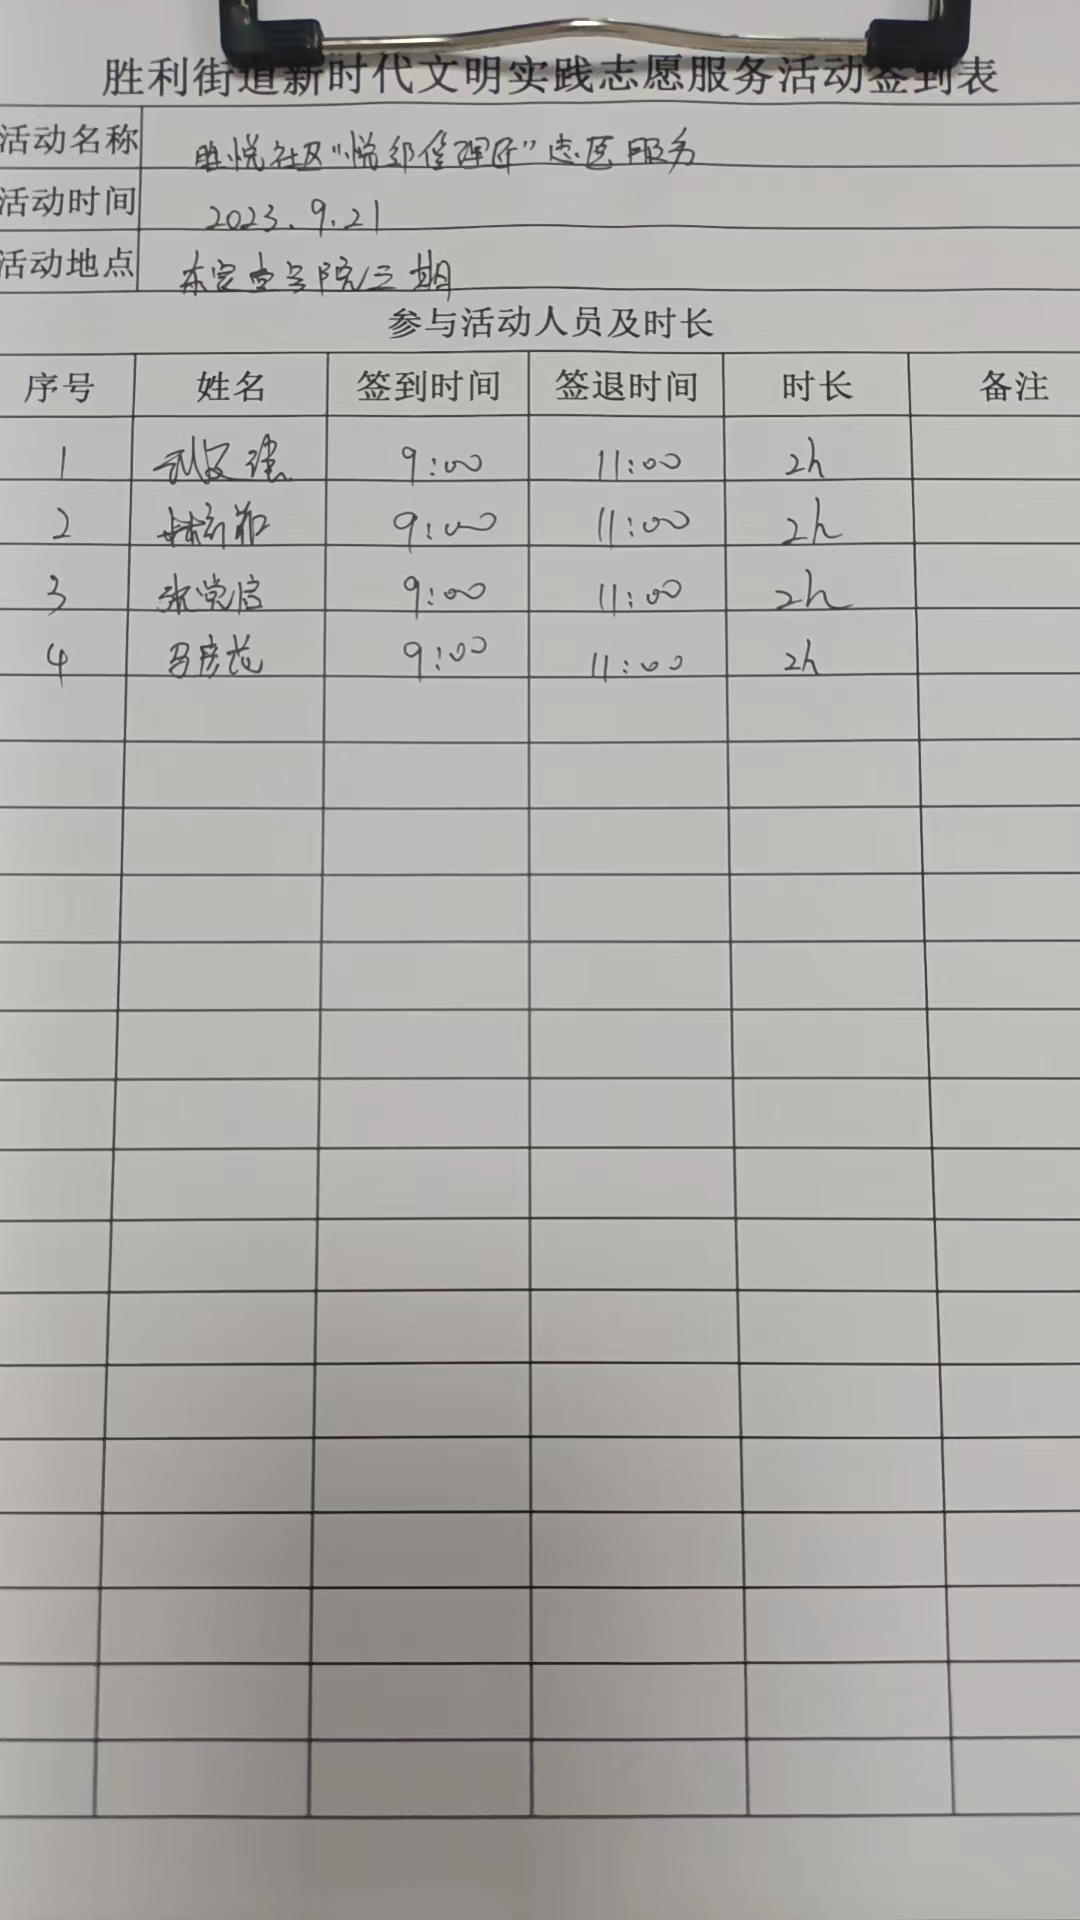 胜利街道新时代文明实践志愿服务活动签到表
活动名称 胜悦社区“悦邻管理所”志愿服务
活动时间 2023.9.21
活动地点 院三期
参与活动人员及时长
序号 姓名 签到时间 签退时间 时长 备注
1 9:00 11:00 2h
2 9:00 11:00 2h
3 张党信 9:00 11:00 2h
4 马彦龙 9:00 11:00 2h